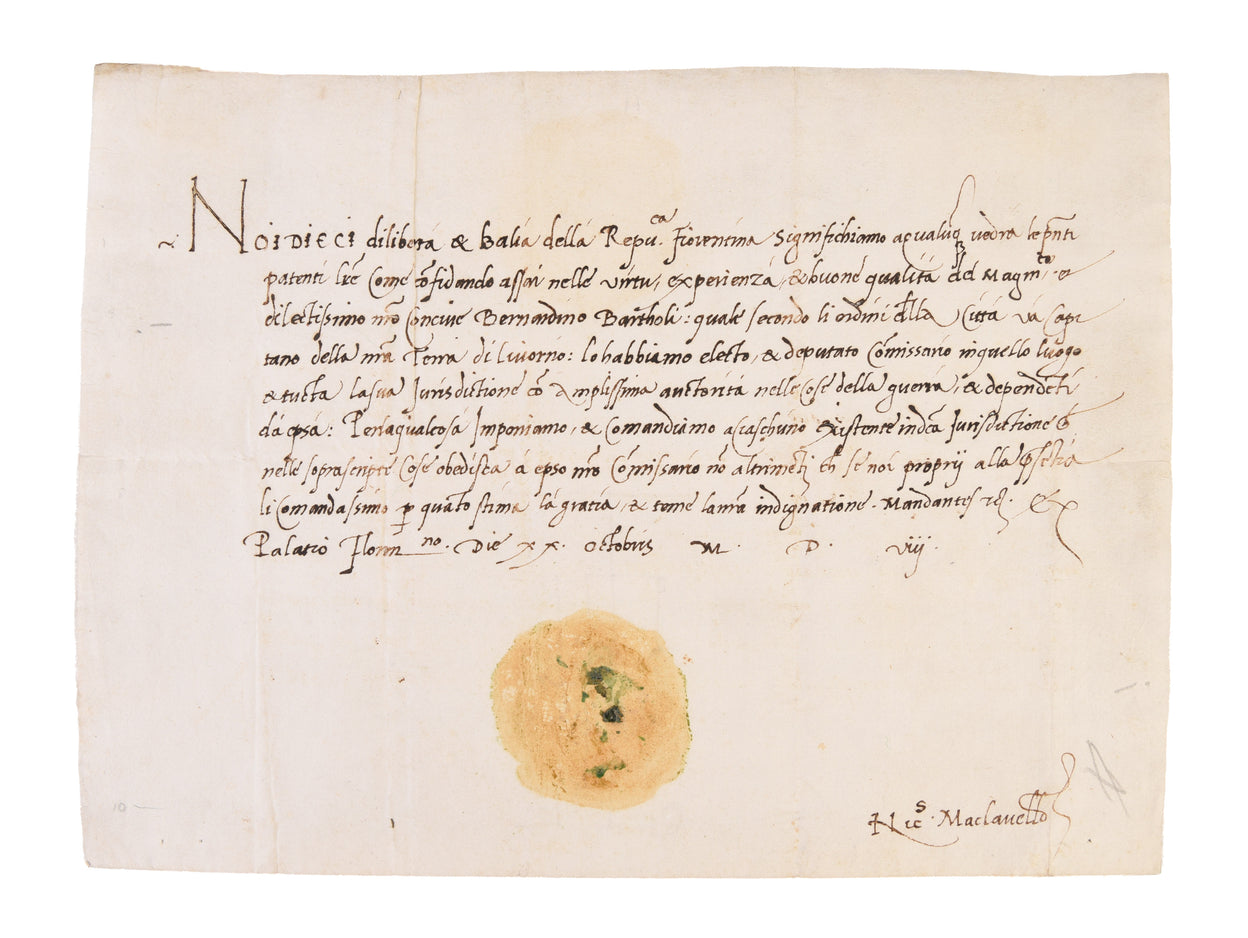 NOI DIECI di liberta & balia della Repu.ca fiorentina Significhiamo a qualunq vedra le pnti
patenti lre Come cōfidando assai nelle virtu, experienza, & buone qualita del Magco, &
dilectissimo nrō Concive Bernardino Bartholi: quale secondo li ordini della Citta va Capi
tano della nrā Terra di Livorno: lo habbiamo electo, & deputato Cōmissario in quello luogo
& tucta la sua Jurisdictione cō Amplissima auctorita nelle cose della guerra, & dependēti
da epsa: Per la qual cosa Imponiamo, & Comandiamo a caschuno existente in dcā Jurisdictione
nelle soprascripte Cose obedisca a epso nrō Cōmissario nō altrimēti ch se noi proprij alla psētia
li Comandassimo p quāto stima la gratia, & teme la nrā indignatione. Mandantes Ex
Palatio florēn.no Die xx. Octobris M. D. viij.
Nics. Maclavellus
10